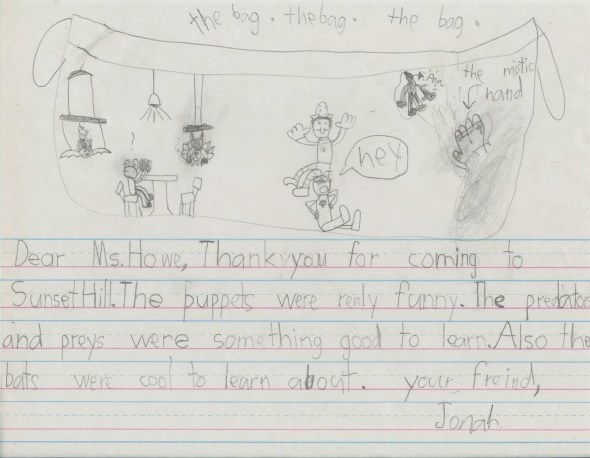 the bag. the bag. the bag.
the mistic
hand
Aiy
?
hey
Dear Ms. Howe, Thank you for coming to
Sunset Hill. The puppets were renly funny. The predators
and preys were something good to learn. Also the
bats were cool to learn about. your freind,
Jonah